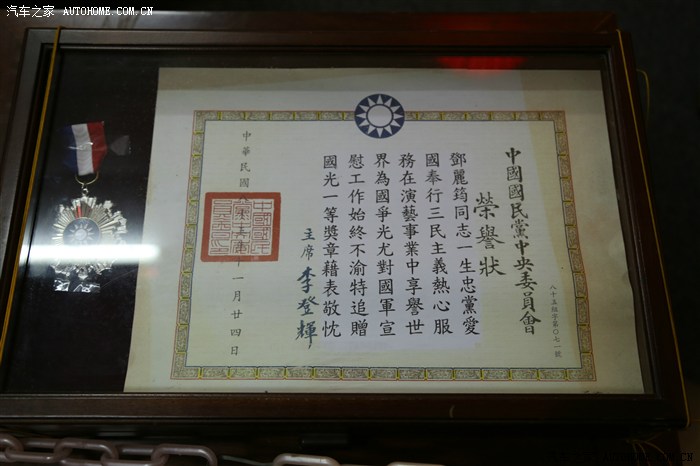 汽车之家 AUTOHOME.COM.CN
中國國民黨中央委員會
榮譽狀
八十五組字第〇七一號
鄧麗筠同志一生忠黨愛
國奉行三民主義熱心服
務在演藝事業中享譽世
界為國爭光尤對國軍宣
慰工作始終不渝特追贈
國光一等獎章藉表敬忱
主席 李登輝
中華民國八十五年十一月廿四日